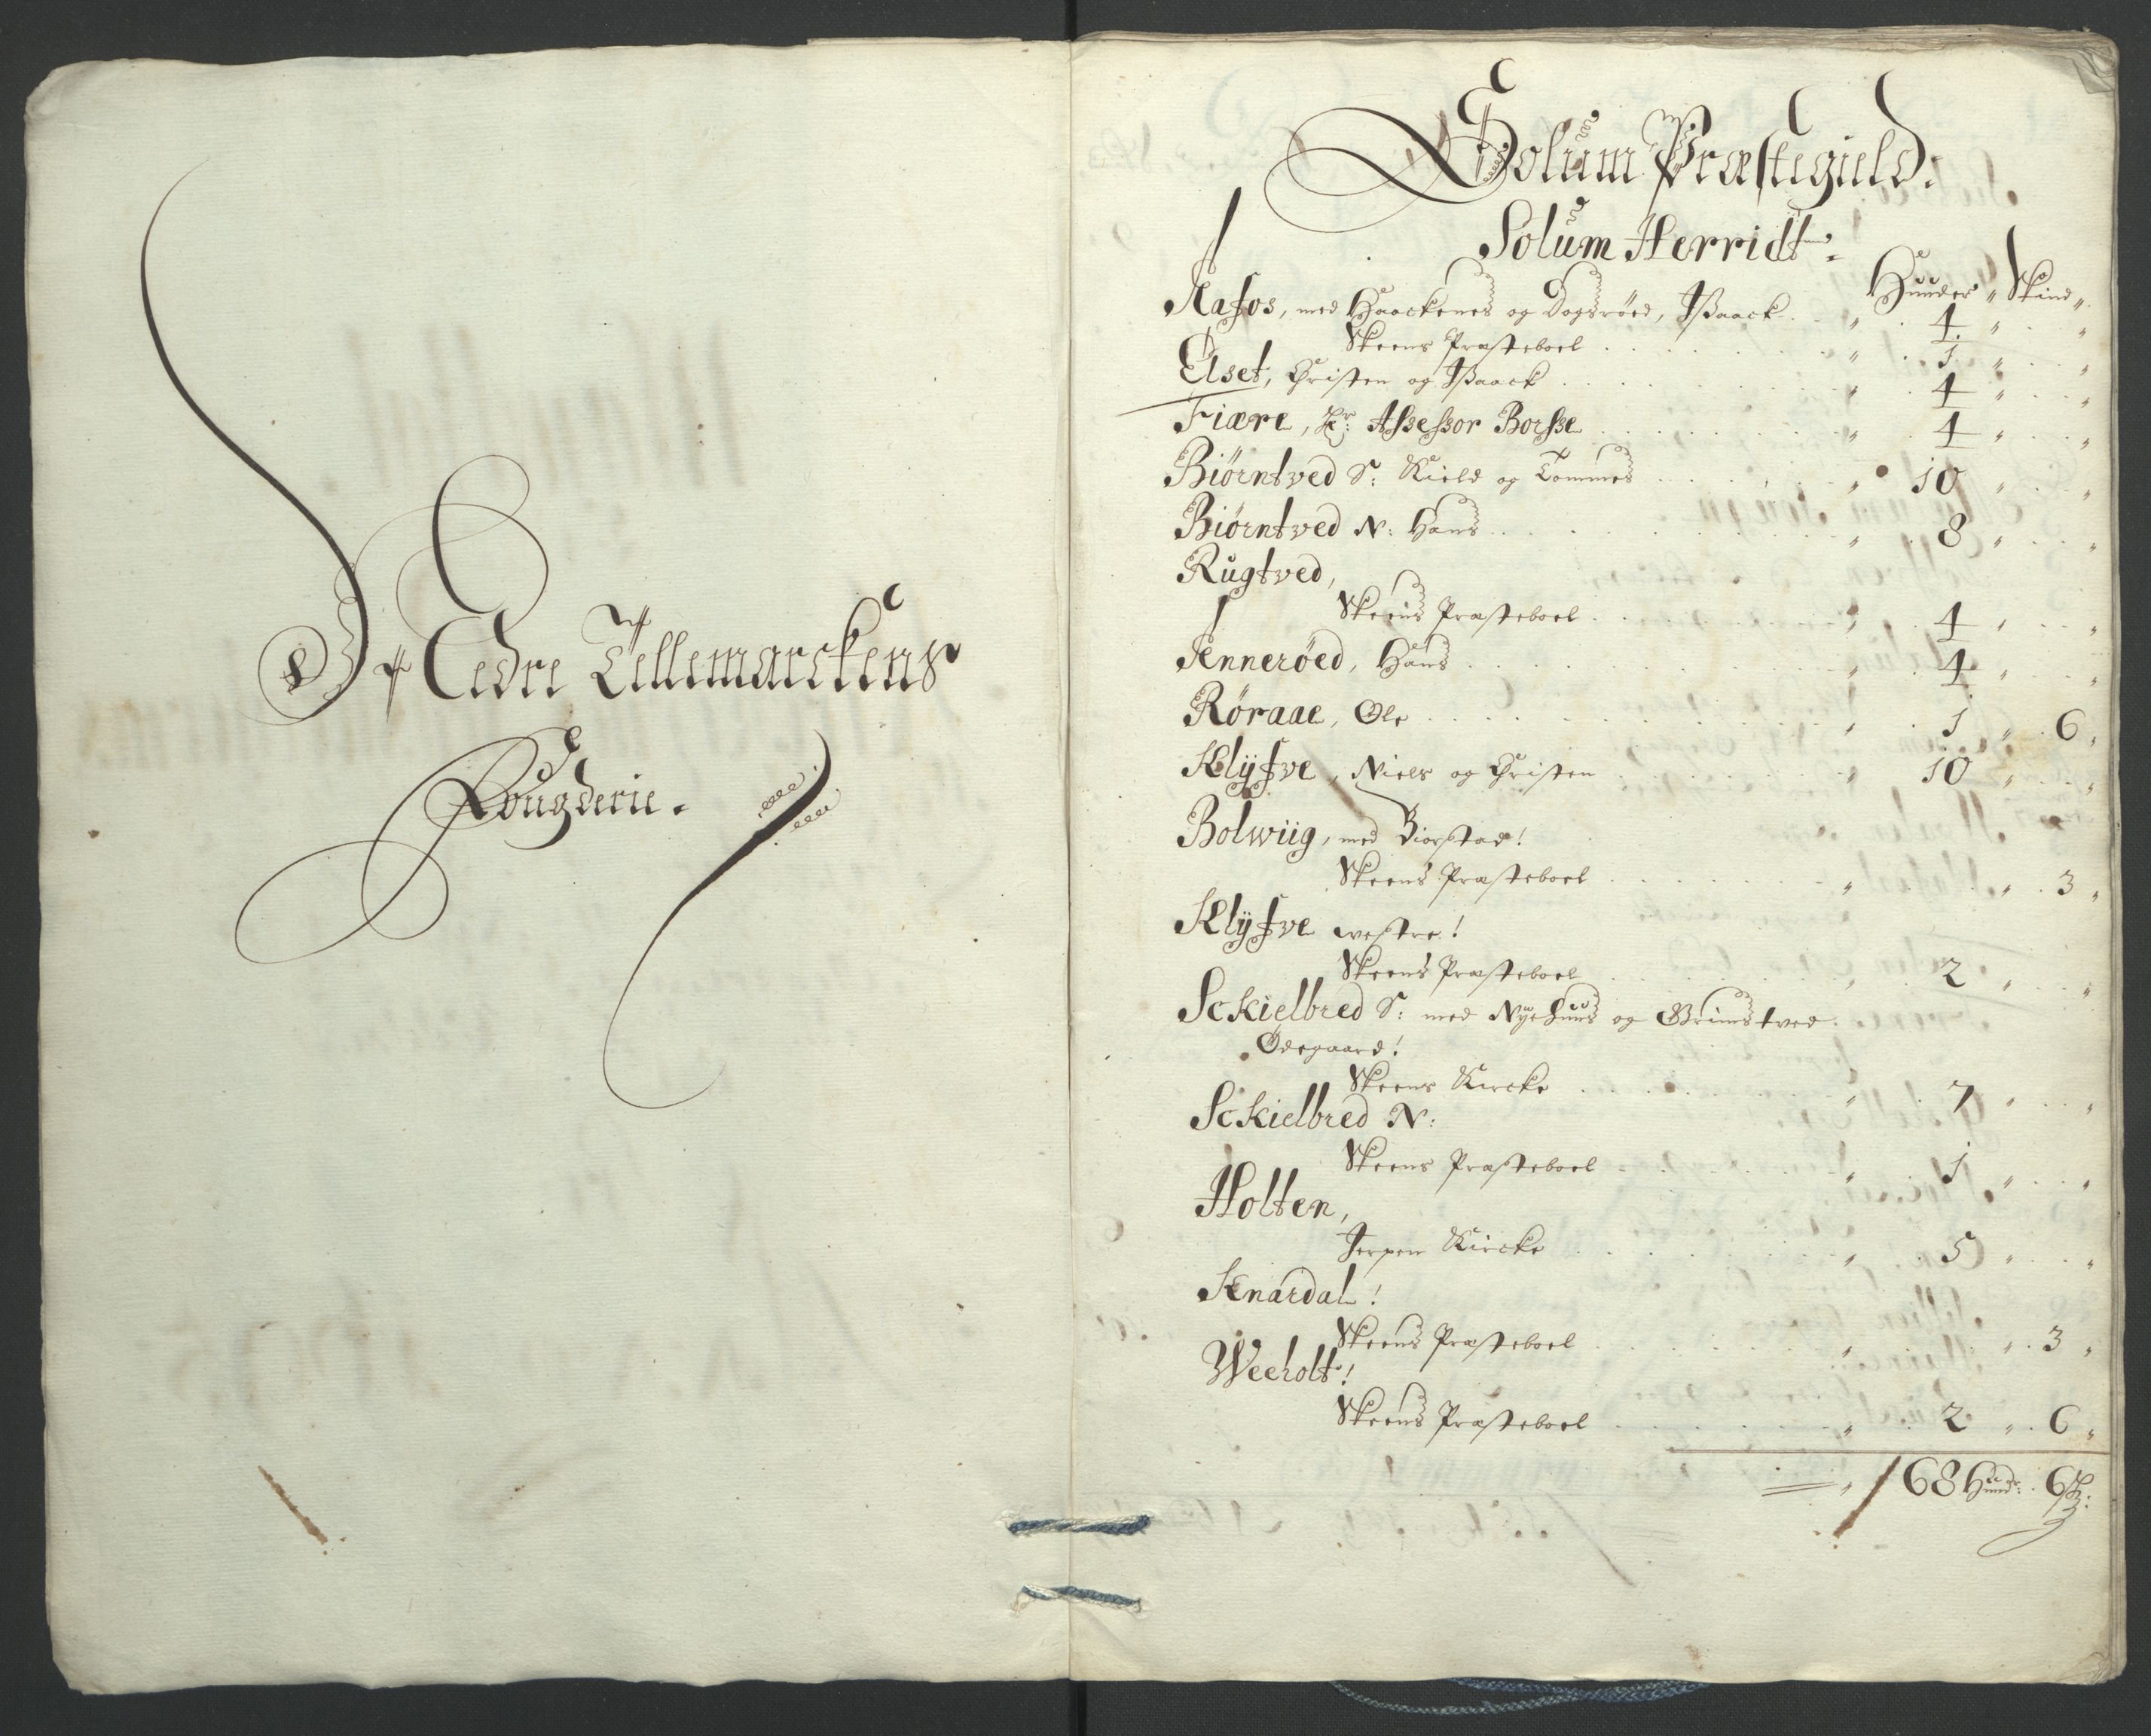 Nedre Tellemarckens
Fougderie.
Solum Præstegield.
Solum Herridt
Huuder Skind
Aafos, med Haackenes og Dogsröed, Isaack 4
Skeens Præsteboel 1
Elset, Christen og Isaack 4
Fiære, Hr: Assessor Borsse 4
Biörntved S: Kield og Tommes 10
Biörntved N: Hans 8
Rugtved,
Skeens Præsteboel 4
Enneröed, Hans 4
Röraae, Ole 1 6
Klyfve, Niels og Christen 10
Bolwiig, med Biorstad!
Skeens Præsteboel 3
Klyfve westre!
Skeens Præsteboel 2
Sckielbred S: med Nyehuus og Grimstved
Ödegaard!
Skeens Kircke 7
Sckielbred N:
Skeens Præsteboel 1
Holten,
Jerpen Kircke 5
Knardal!
Skeens Præsteboel 3
Weeholt!
Skeens Præsteboel 2 6
68 Huuder: 6 Sk: